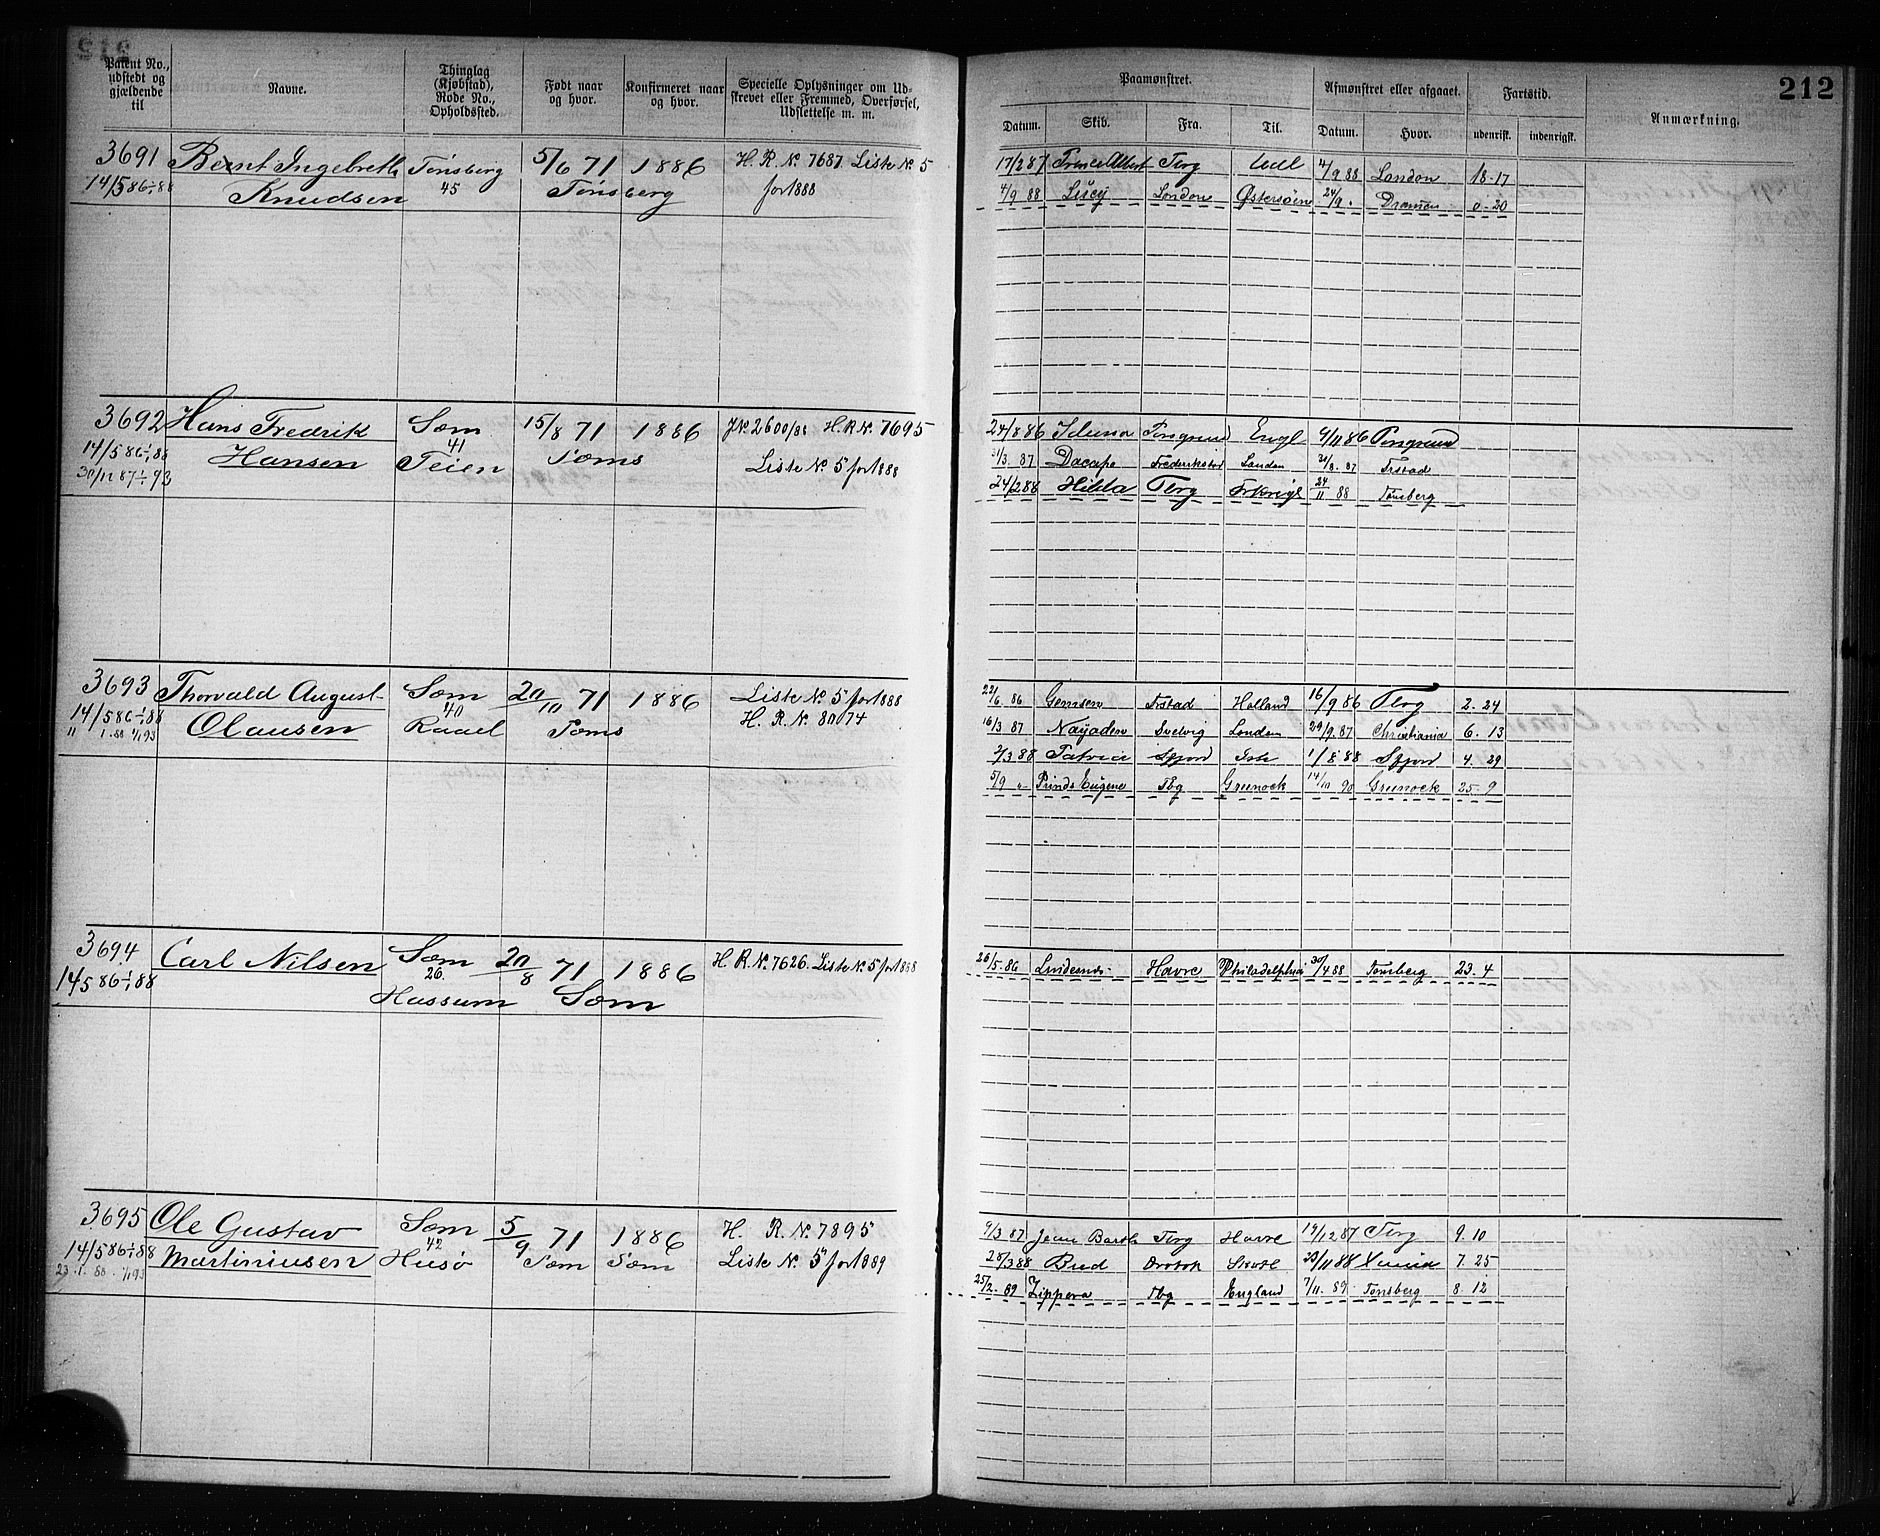 Patent No., udstedt og gjældende til
Navne.
Thinglag (Kjøbstad), Rode No., Opholdssted.
Født naar og hvor.
Konfirmeret naar og hvor.
Specielle Oplysninger om Udskrevet eller Fremmed, Overførsel, Udslettelse m. m.
Paamønstret.
Afmønstret eller afgaaet.
Fartstid.
Anmærkning.
212
Datum.
Skib.
Fra.
Til.
Datum.
Hvor.
udenrigsk.
indenrigsk.
3691 Bernt Ingebreth Tönsberg 5/6 71 1886 H. R. No. 7687 Liste No 5
14/5 86 1/1 88 Knudsen 45 Tönsberg for 1888
17/2 87 Prince Albert Tbrg Udl 4/9 88 London 18-17
4/9 88 London Østersøen 24/9 " Dramen 0-20
3692 Hans Fredrik Sæm 15/8 71 1886 JNo. 2600/88 H.R.No. 7695
14/5 86 1/1 88 Hansen 41 Teien Sæms Liste No 5 for 1888
30/11 87 1/1 93
24/8 86 Iduna Porsgrund Engl 9/11 86 Porsgrund
31/3. 87 Dacapo Frederikstad London 31/8. 87 Frstad
24/2 88 Hilda Tbrg 24/11 88 Tønsberg
3693 Thorvald August Sæm 20/10 71 1886 Liste No 5 for 1888
14/5 86 1/1 88 Olausen 40 Raael Sæms H. R. No. 8074
11/1. 88 1/1 93
22/6 86 Gemsen Frstad Holland 16/9 86 Tbrg 2-24
16/3 87 Nayaden Svelvig London 29/9. 87 Christiania 6.13
2/3 88 Patria Sfjord 1/8 88 Sfjord 4.29
5/9 " Prinds Eugene Tbg Greenock 14/10 90 Greenock 25-9
3694 Carl Nilsen Sæm 20/8 71 1886 H. R. No. 7626. Liste No. 5 for 1888
14/5 86 1/1 88 26. Hassum Sæm
26/5-86 Lindesnæs Havre Philadelphia 30/4 88 Tønsberg 23.4
3695 Ole Gustav Sæm 5/9 71 1886 H. R. No. 7895
14/5 86 1/1 88 Martiniusen 42 Husö Sæm Sæm Liste No. 5 for 1889
23.1.88 1/1 93
9/3 87 Tbrg Havre 19/12 87 Tbrg 9.10
28/3 88 Bud 29/11 88 7.25
25/2. 89 Zippora Tbg England 7/11. 89 Tønsberg 8 12